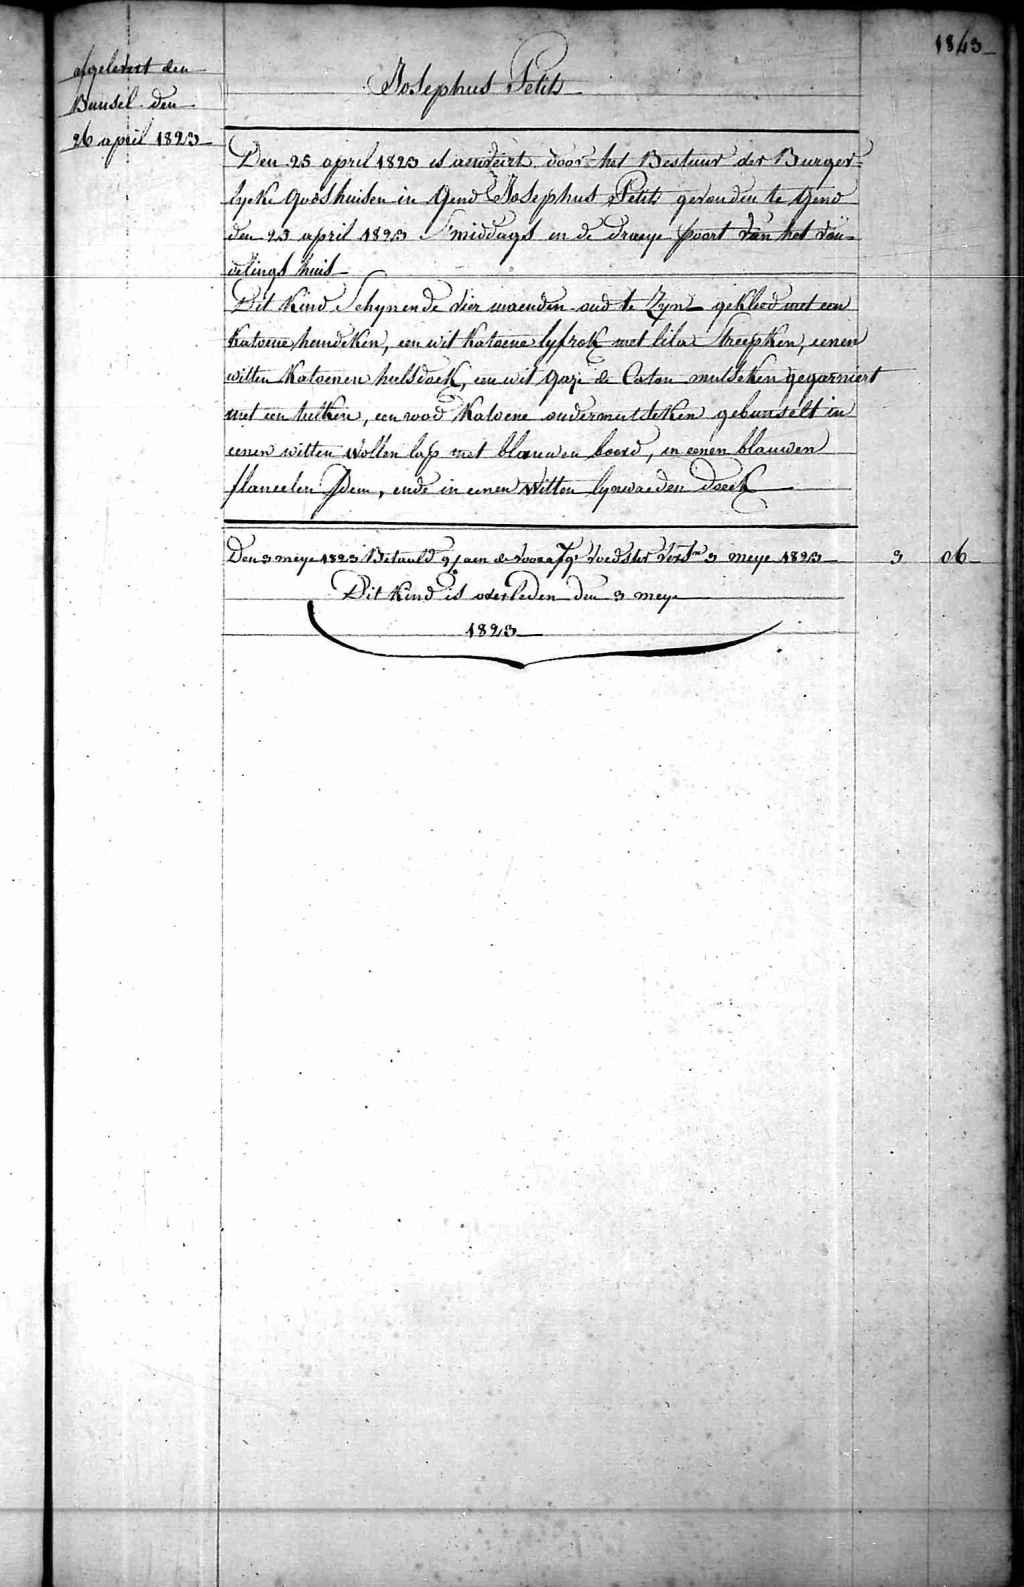 1843
afgelevert den
Bunsel den
26 april 1823
Josephus Petit
Den 25 april 1823 is aenveirt door het Bestuur der Burger-
lycke Godshuisen in Gend Josephus Petit gevonden te Gend
den 23 april 1823 S'middags in de draeye poort van het von-
delings huis
Dit Kind Schynende vier maenden oud te Zyn gekleed met een
katoene hemdeken, een wit katoene lyfrok met lila Streepken, eenen
witten katoenen halsdoek, een wit gaze de Coton mutseken gegarniert
met een tulken, een rood katoene ondermutseken gebunselt in
eenen witten Wollen lap met blauwen boord, in eenen blauwen
flanellen Idem, ende in eenen Witten lynwaeden doeck
Den 3 meye 1823 Betaald aen de voedster tot 3 meye 1823 3 06
Dit Kind is overleden den 3 meye
1823